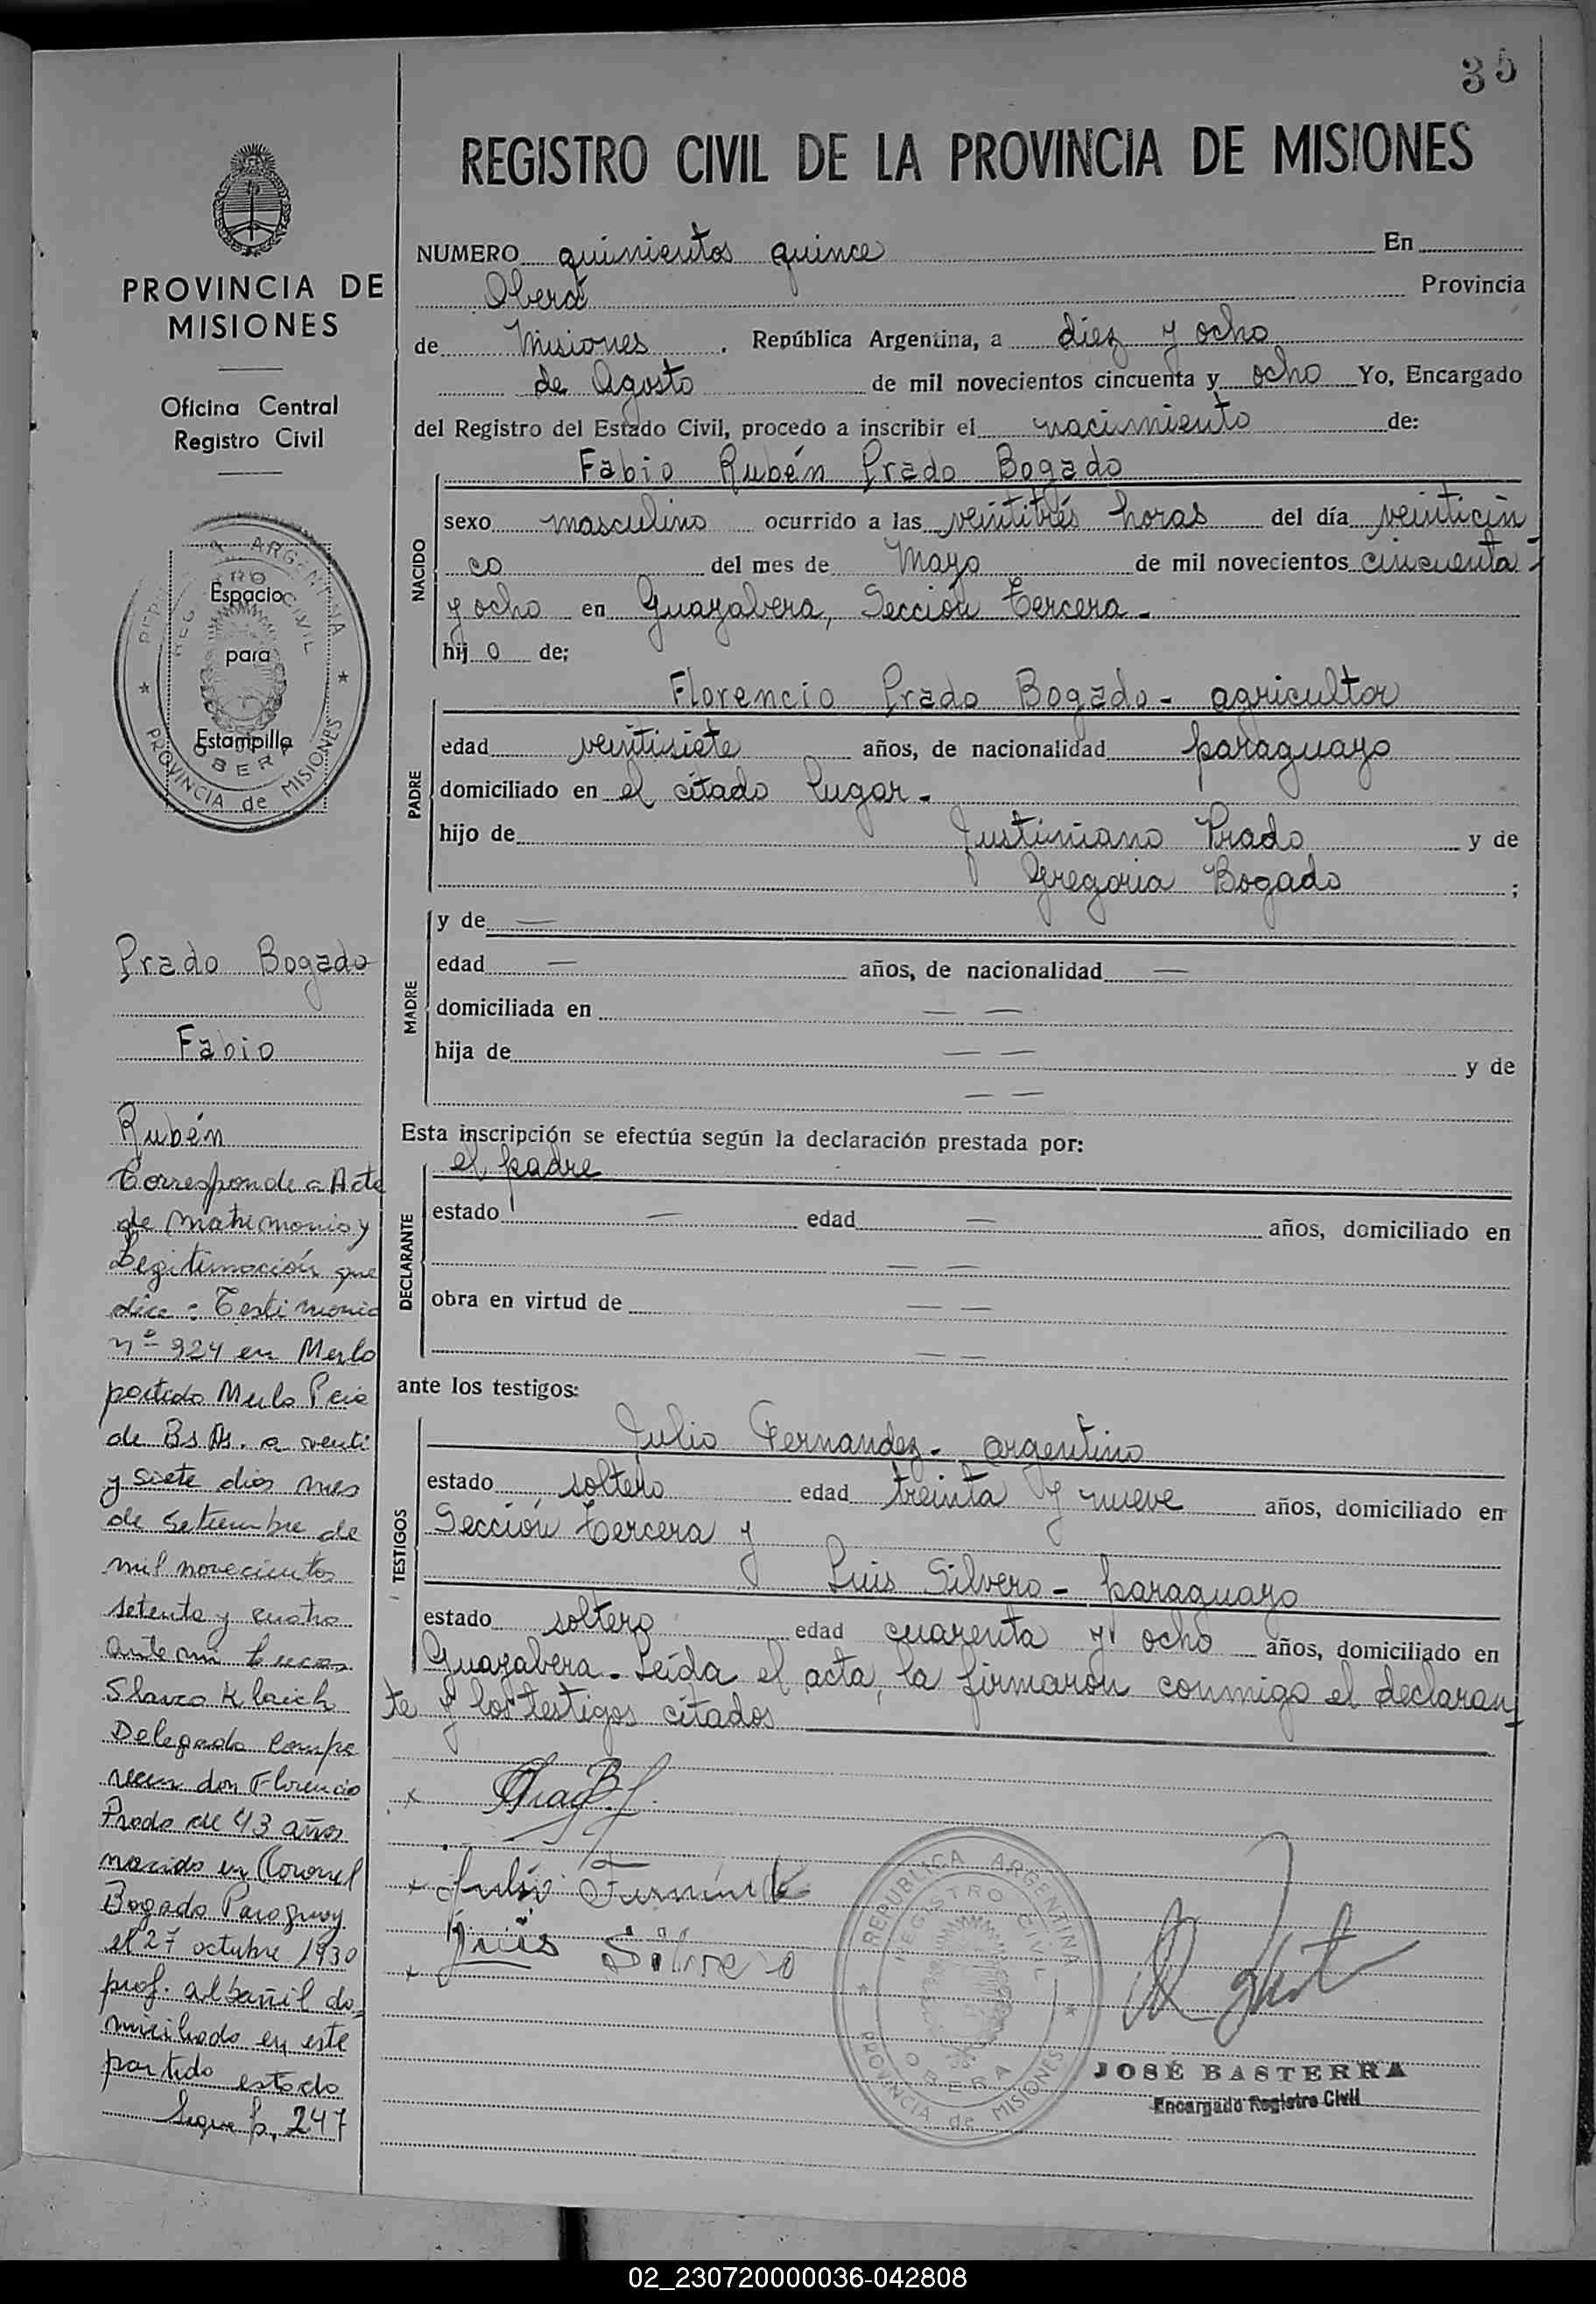 35
REGISTRO CIVIL DE LA PROVINCIA DE MISIONES
PROVINCIA DE
MISIONES
Oficina Central
Registro Civil
REPUBLICA ARGENTINA
REGISTRO CIVIL
Espacio
para
Estampilla
OBERA
PROVINCIA de MISIONES
Prado Bogado
Fabio
Rubén
Corresponde a Acta
de matrimonio y
Legitimación que
dice: Testimonio
nº 924 en Merlo
partido Merlo Pcia
de Bs As. a venti
y siete dias mes
de setiembre de
mil novecientos
setenta y cuatro
ante mi
Delegado compa
recen don Florencio
Prado de 43 años
nacido en Coronel
Bogado Paraguay
el 27 octubre 1930
prof. albañil do-
miciliado en este
partido estado
Sigue p. 247
NUMERO quinientos quince En
Oberá Provincia
de Misiones. República Argentina, a diez y ocho
de Agosto de mil novecientos cincuenta y ocho Yo, Encargado
del Registro del Estado Civil, procedo a inscribir el nacimiento de:
Fabio Rubén Prado Bogado
NACIDO
sexo masculino ocurrido a las veintitrés horas del día veinticin
co del mes de Mayo de mil novecientos cincuenta
y ocho en Guayabera, Sección Tercera.-
hijo de;
Florencio Prado Bogado - agricultor
PADRE
edad veintisiete años, de nacionalidad paraguayo
domiciliado en el citado lugar.-
hijo de Justiniano Prado y de
Gregoria Bogado ;
MADRE
y de —
edad — años, de nacionalidad —
domiciliada en — —
hija de — — y de
— —
Esta inscripción se efectúa según la declaración prestada por:
el padre
DECLARANTE
estado — edad — años, domiciliado en
— —
obra en virtud de — —
— —
ante los testigos:
TESTIGOS
Julio Fernandez - argentino
estado soltero edad treinta y nueve años, domiciliado en
Sección Tercera y
Luis Silvero - paraguayo
estado soltero edad cuarenta y ocho años, domiciliado en
Guayabera.- Leída el acta, la firmaron conmigo el declaran
te y los testigos citados
Luis Silvero
REPUBLICA ARGENTINA
REGISTRO CIVIL
OBERA
PROVINCIA de MISIONES
JOSÉ BASTERRA
Encargado Registro Civil
02_230720000036-042808